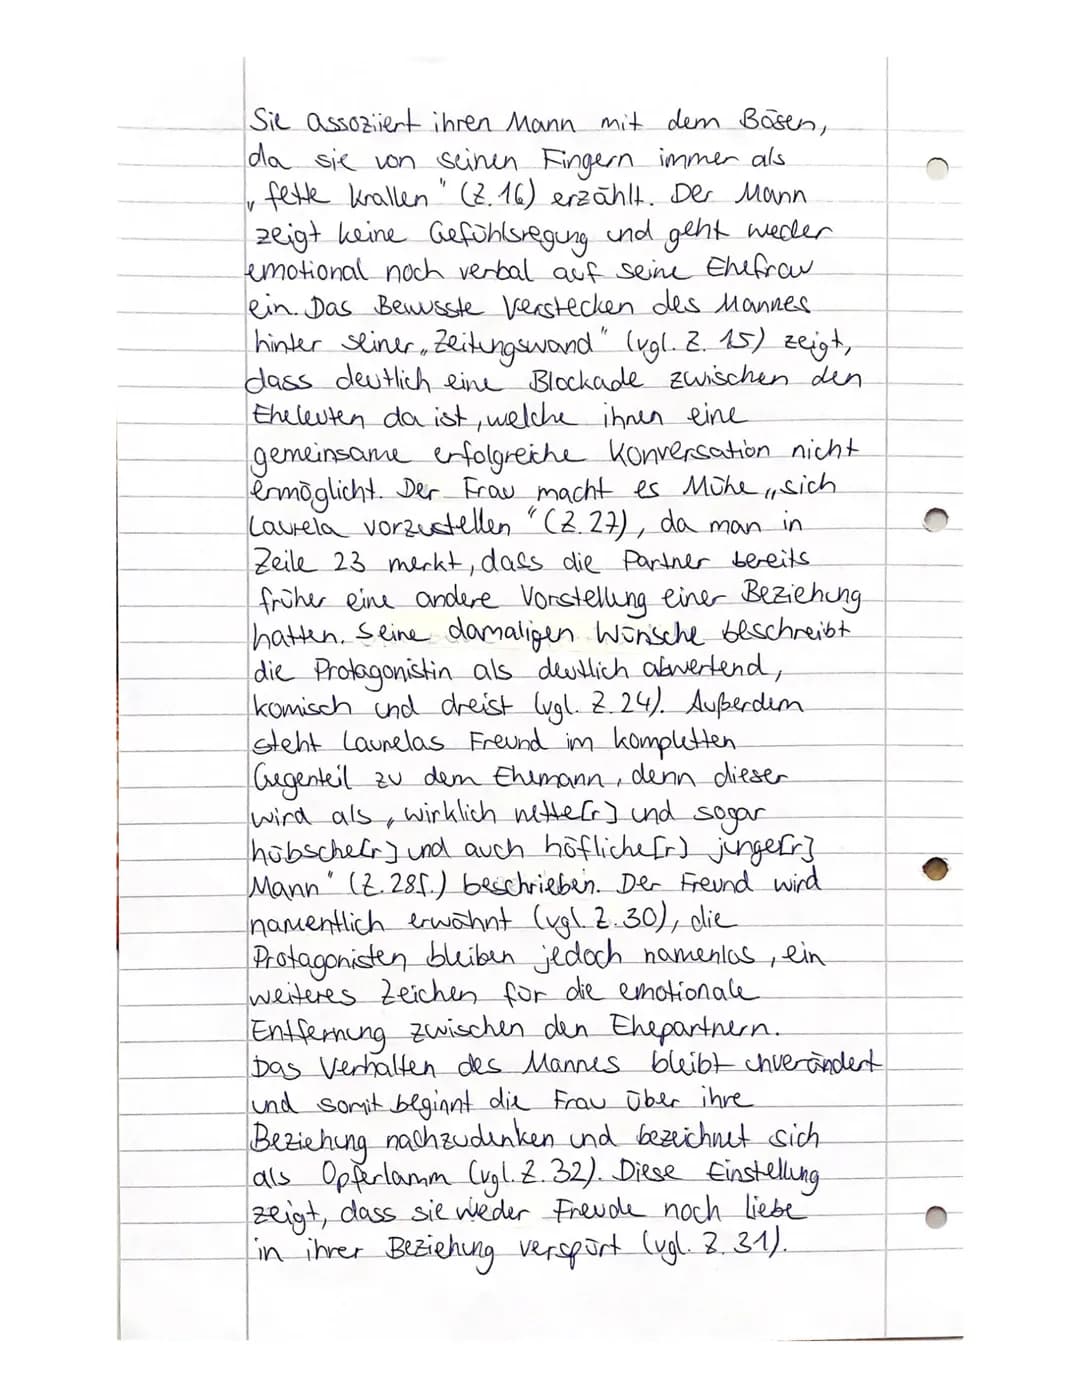 Sie assoziiert ihren Mann mit dem Bösen,
da sie von seinen Fingern immer als
„fette Krallen" (Z. 16) erzählt. Der Mann
zeigt keine Gefühlsregung und geht weder
emotional noch verbal auf seine Ehefrau
ein. Das Bewusste Verstecken des Mannes
hinter seiner „Zeitungswand" (vgl. Z. 15) zeigt,
dass deutlich eine Blockade zwischen den
Eheleuten da ist, welche ihnen eine
gemeinsame erfolgreiche Konversation nicht
ermöglicht. Der Frau macht es Mühe „sich
Laurela vorzustellen" (Z. 27), da man in
Zeile 23 merkt, dass die Partner bereits
früher eine andere Vorstellung einer Beziehung
hatten. Seine damaligen Wünsche beschreibt
die Protagonistin als deutlich abwertend,
komisch und dreist (vgl. Z. 24). Außerdem
steht Laurelas Freund im kompletten
Gegenteil zu dem Ehemann, denn dieser
wird als „wirklich nette[r] und sogar
hübsche[r] und auch höfliche[r] junge[r]
Mann" (Z. 28f.) beschrieben. Der Freund wird
namentlich erwähnt (vgl. Z. 30), die
Protagonisten bleiben jedoch namenlos, ein
weiteres Zeichen für die emotionale
Entfernung zwischen den Ehepartnern.
Das Verhalten des Mannes bleibt unverändert
und somit beginnt die Frau über ihre
Beziehung nachzudenken und bezeichnet sich
als Opferlamm (vgl. Z. 32). Diese Einstellung
zeigt, dass sie weder Freude noch Liebe
in ihrer Beziehung verspürt (vgl. Z. 31).